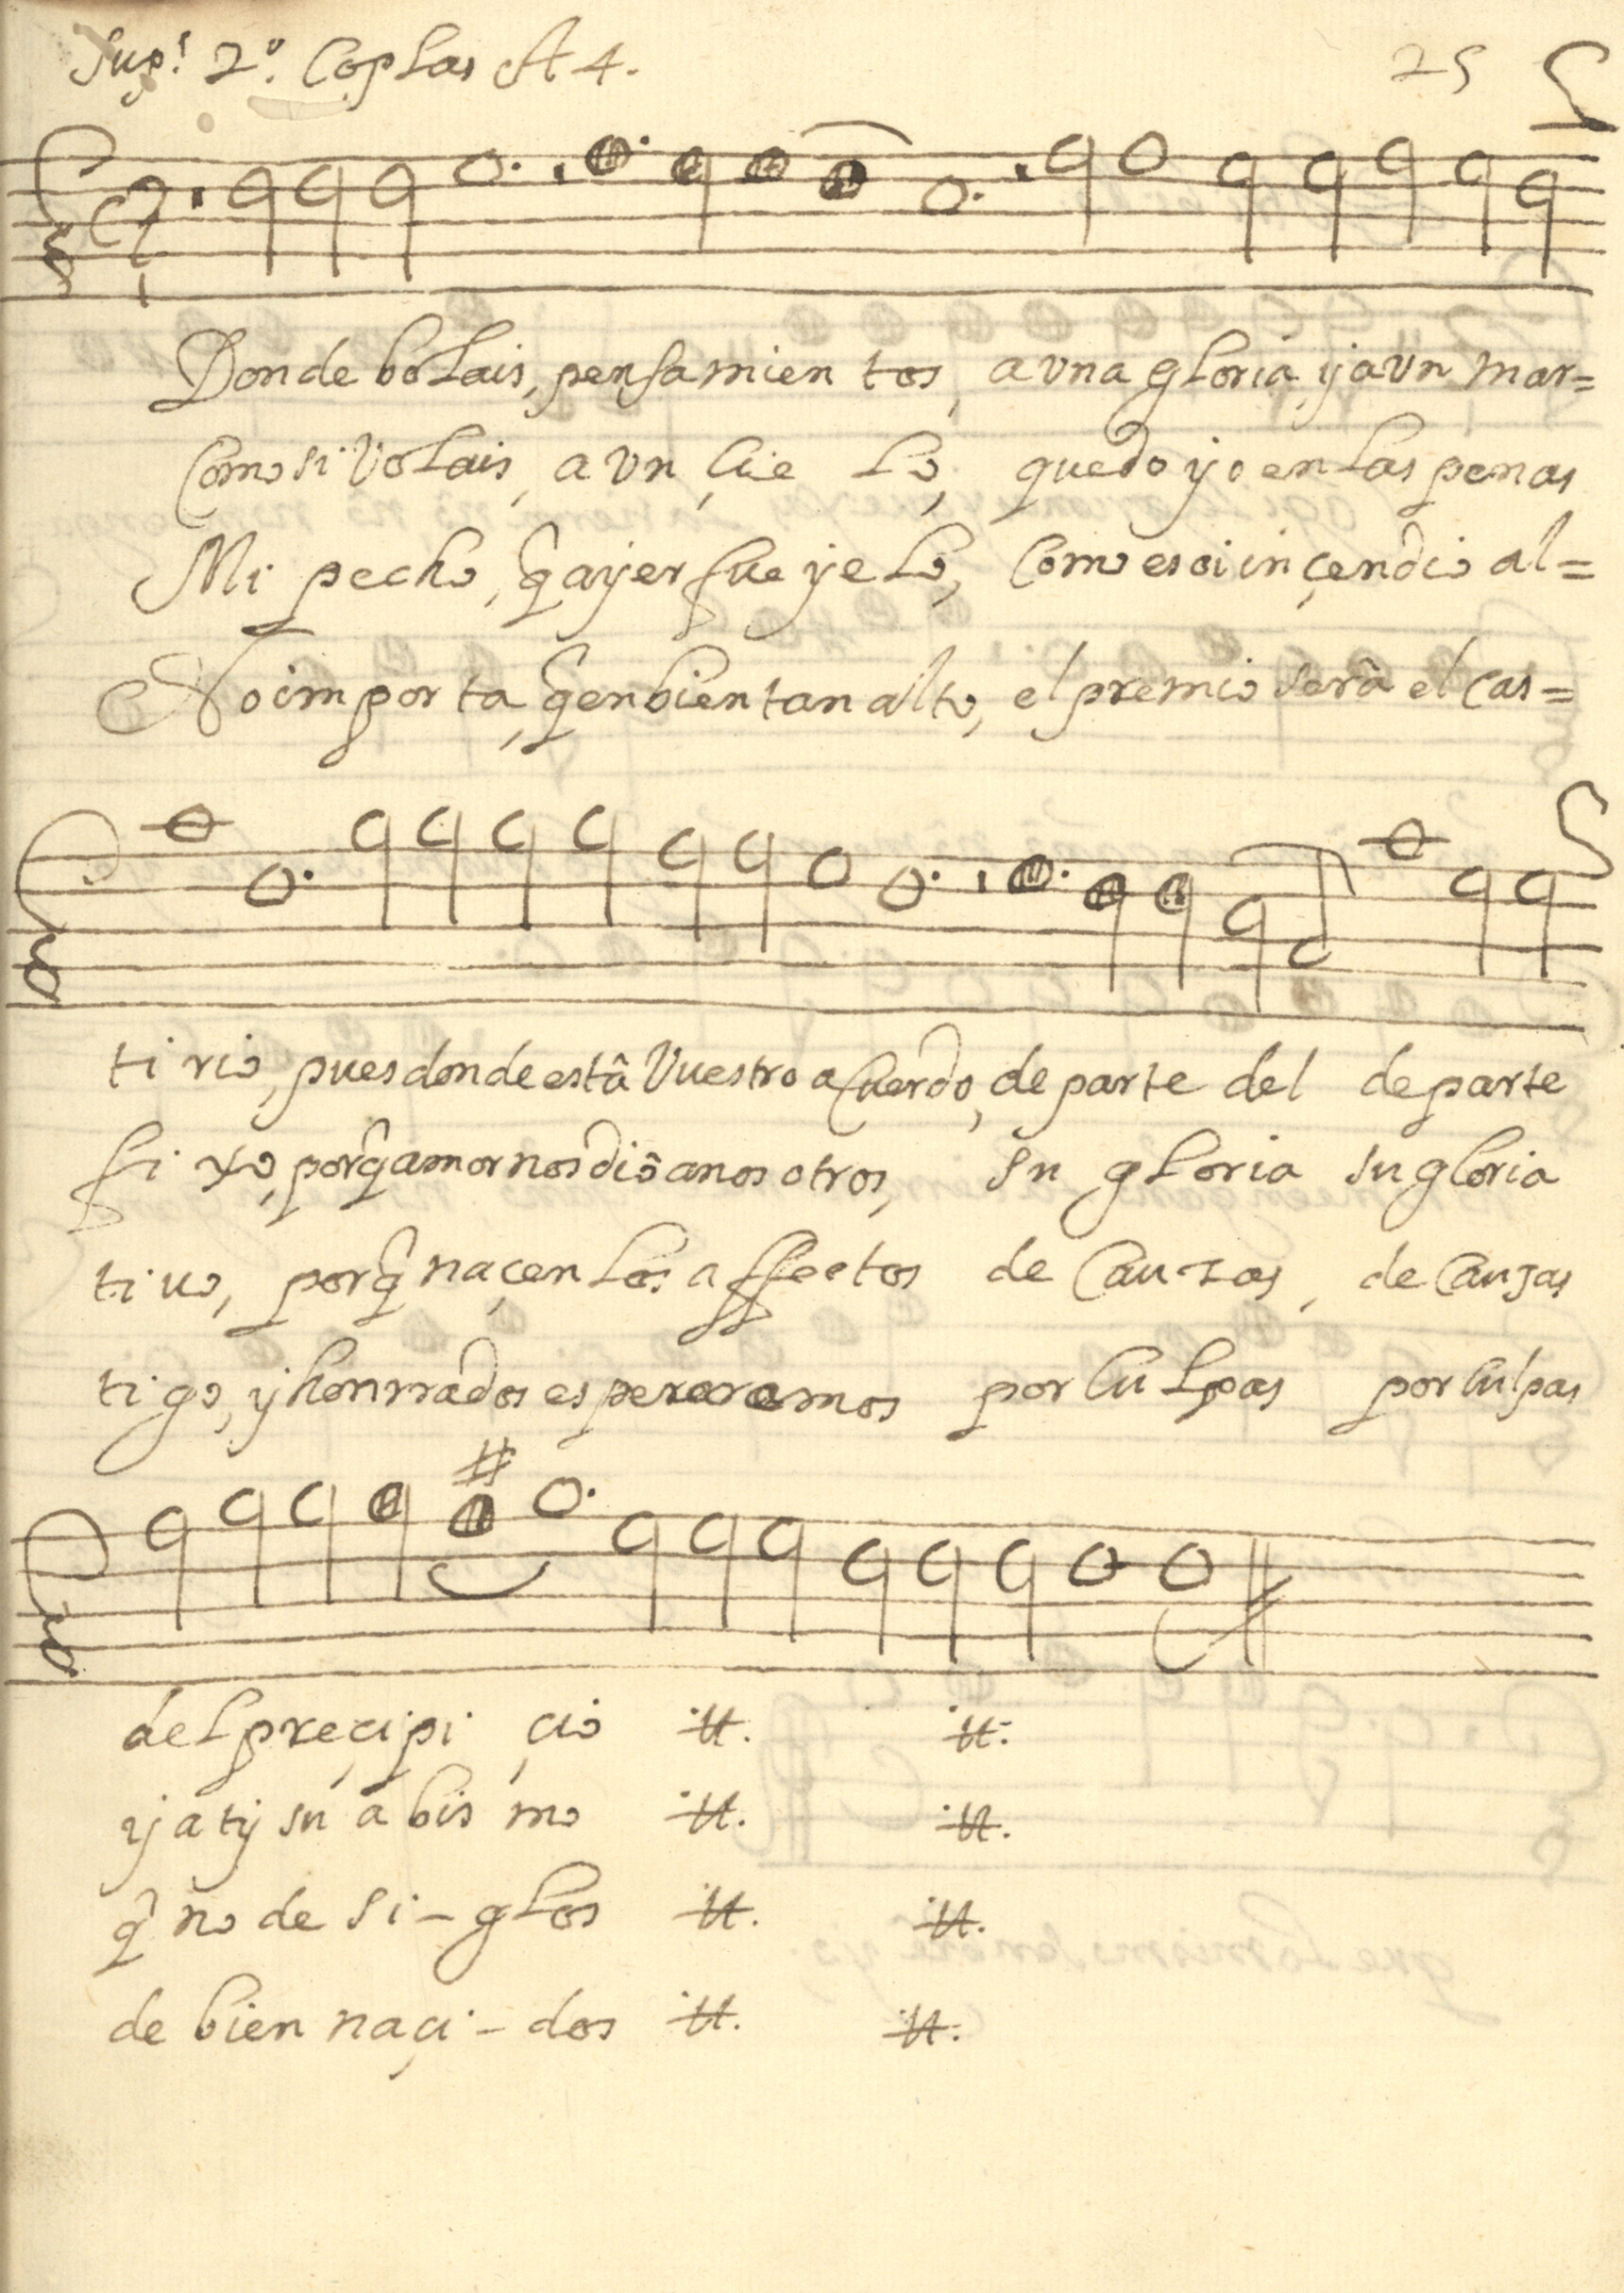 Supˢ. 2º. Coplas A 4. 25
Donde bolais, pensamientos, a vna gloria, y a vn mar=
Como si volais, a vn çie lo, quedo yo en las penas
Mi pecho, q̂ ayer fue yelo, como es oi inçendio al=
No importa, q̂ en bien tan alto, el premio serâ el cas=
ti rio, pues donde estâ Vuestro acuerdo, de parte del de parte
fi xo, porq̂ amor nos diô a nosotros, su gloria su gloria
tiuo, porq̂ naçen los affectos de causas, de causas
tigo, y honrrados espereramos por culpas por culpas
del preçipi çio ij. ij.
y a ty su abis mo ij. ij.
q̂ no de si-glos ij. ij.
de bien naçi-dos ij. ij.